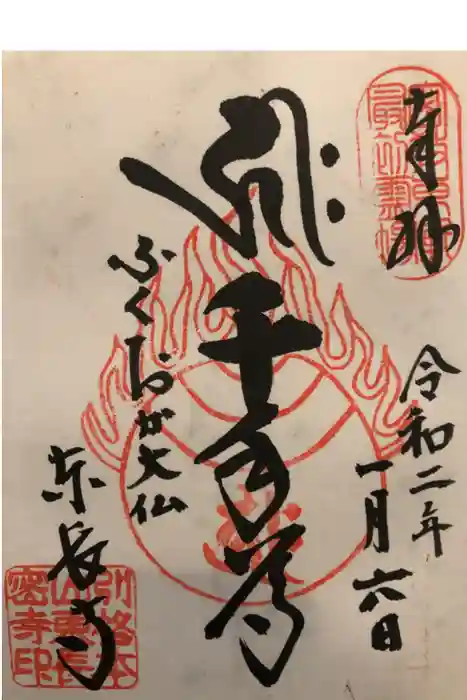 奉拝
令和二年
一月六日
𑖮𑖿𑖨𑖱𑖾
千手尊
ふくおか大仏
東長寺
別格本
山東長
密寺印